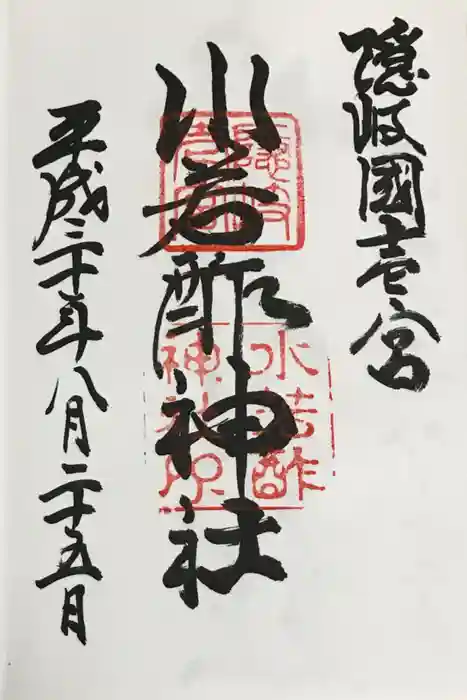 隠岐國壱宮
水若酢神社
水若酢
神社印
平成三十年八月二十五日